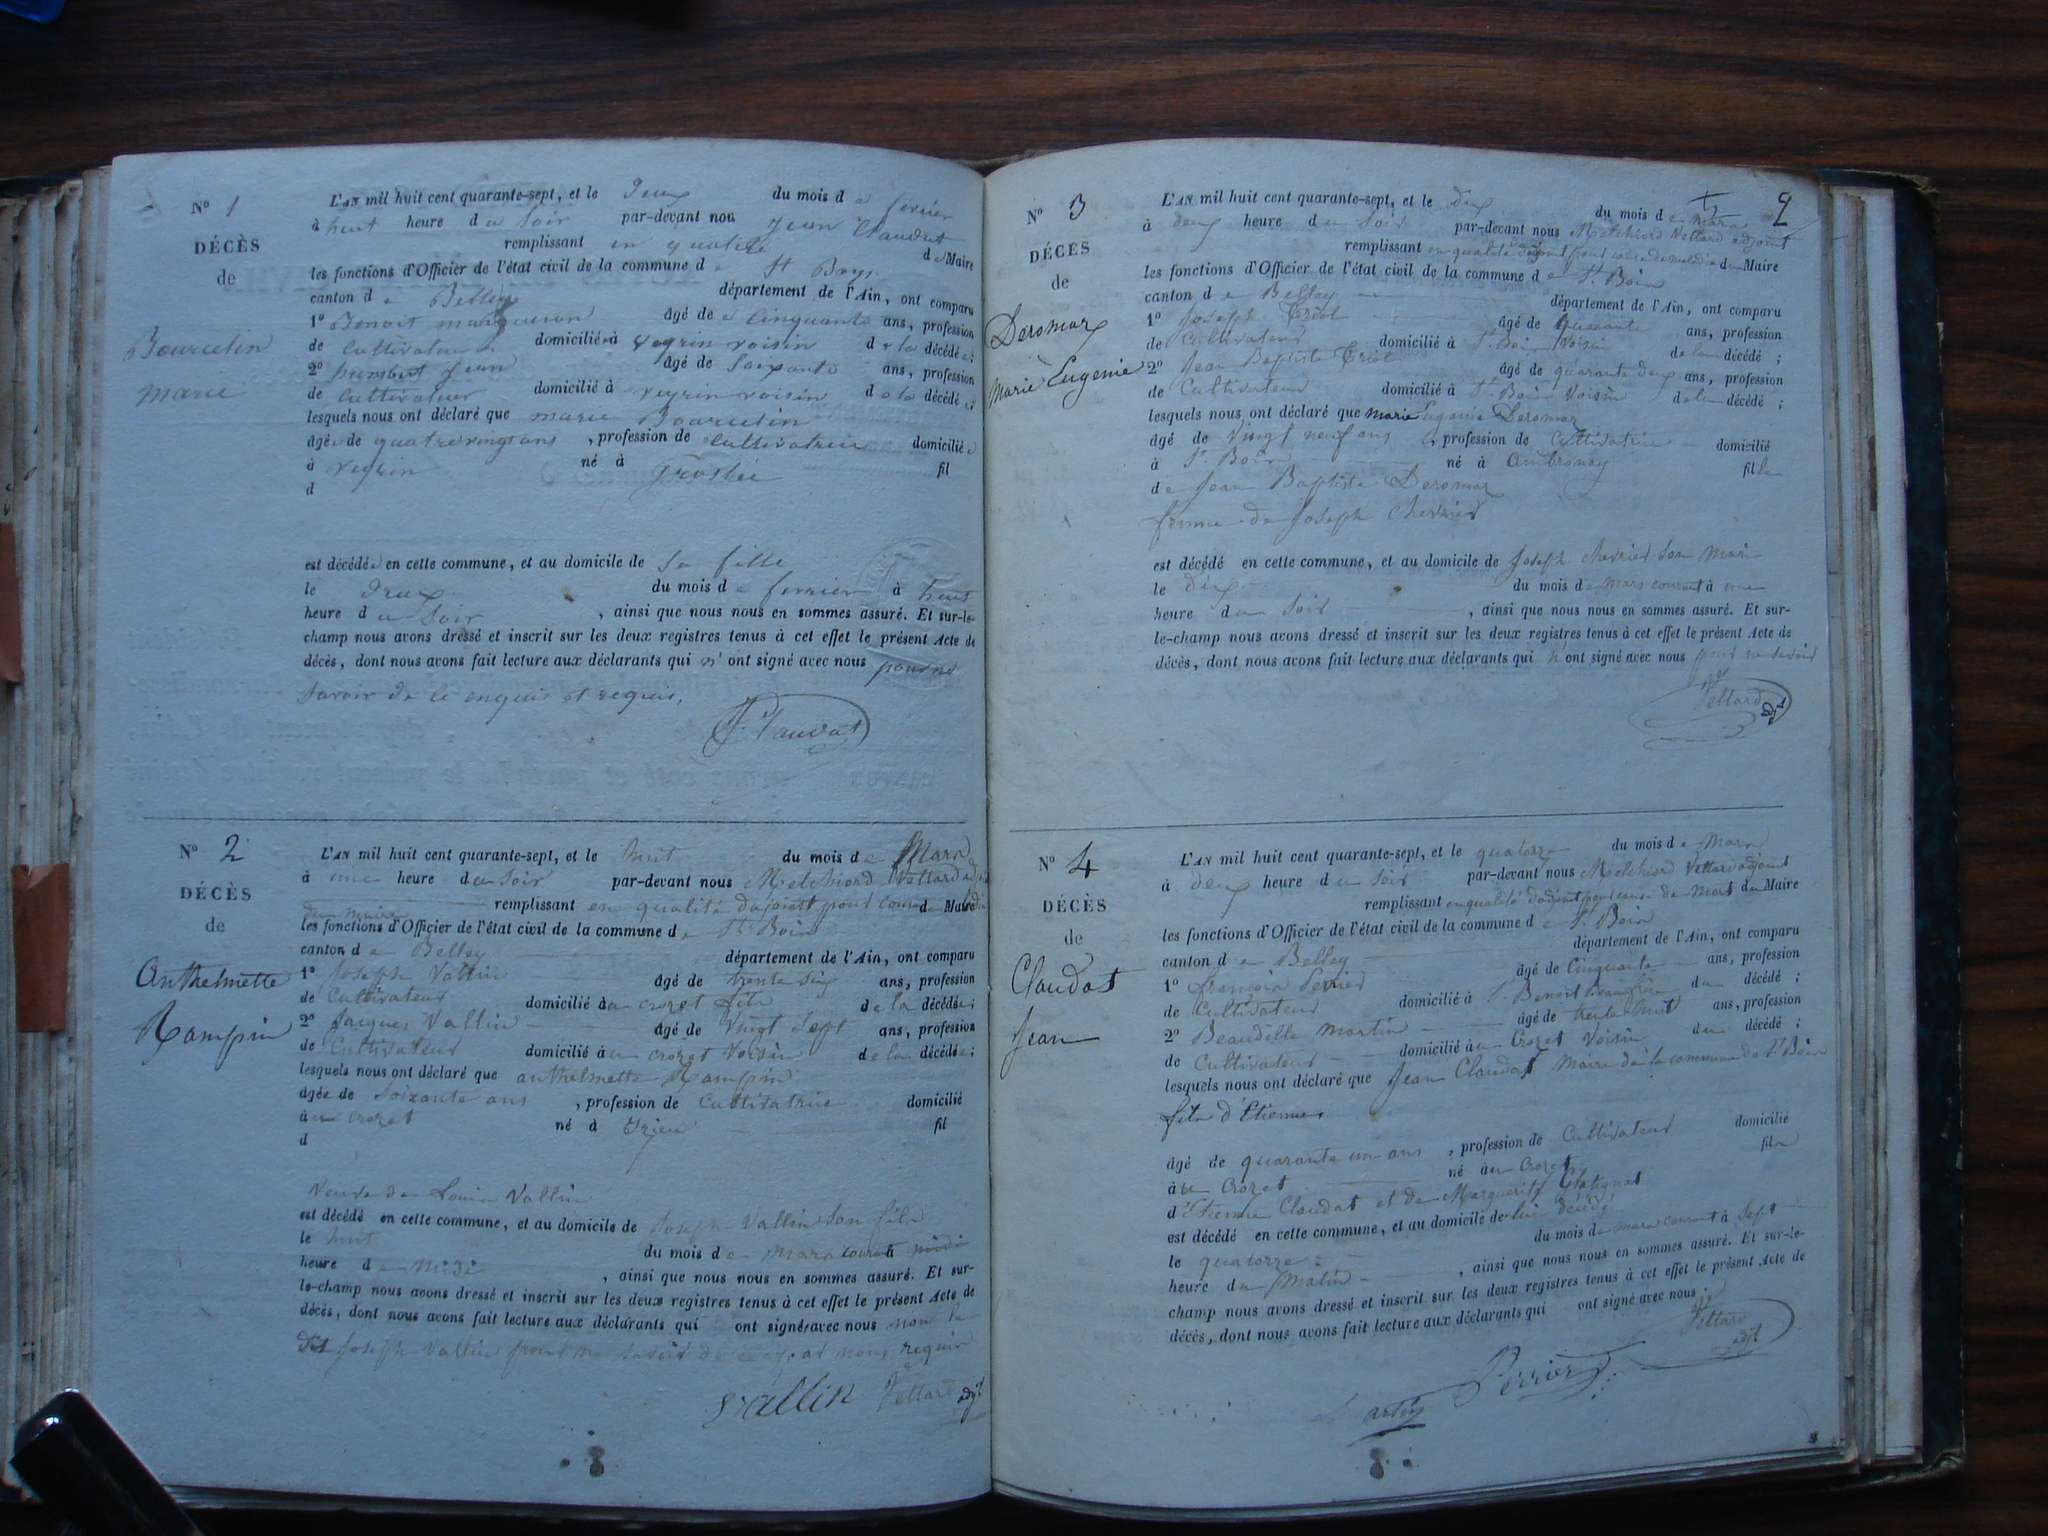 N° 1
DÉCÈS
de
Bourcelin
marie
L'AN mil huit cent quarante-sept, et le Deux du mois de fevrier
à heut heure du soir par-devant nou Jean Claudat
remplissant en qualité de Maire
les fonctions d'Officier de l'état civil de la commune de St
canton de Belley département de l'Ain, ont comparu
1° Benoit âgé de cinquante ans, profession
de cultivateur domicilié à veyrin voisin de la décédée;
2° jean âgé de soixante ans, profession
de cultivateur domicilié à veyrin voisin de la décédée;
lesquels nous ont déclaré que marie Bourcelin
âgée de quatrevingt ans, profession de cultivatrice domiciliée
à veyrin né à groslee fil
d
est décédée en cette commune, et au domicile de sa fille
le Deux du mois de fevrier à heut
heure du soir, ainsi que nous nous en sommes assuré. Et sur-le-
champ nous avons dressé et inscrit sur les deux registres tenus à cet effet le présent Acte de
décès, dont nous avons fait lecture aux déclarants qui n'ont signé avec nous pour ne
savoir de le enquis et requis.
Claudat
N° 2
DÉCÈS
de
Anthelmette
Rampin
L'AN mil huit cent quarante-sept, et le huit du mois de Mars
à une heure du soir par-devant nous Melchiord Vettard
du maire remplissant en qualité dajoint pour cause d Maire
les fonctions d'Officier de l'état civil de la commune de St Boin
canton de Belley département de l'Ain, ont comparu
1° Joseph Vallin âgé de trente six ans, profession
de Cultivateur domicilié au crozet fils de la décédée;
2° Jacques Vallin âgé de Vingt Sept ans, profession
de Cultivateur domicilié au crozet Voisin de la décédée;
lesquels nous ont déclaré que anthelmette Rampin
âgée de Soixante ans, profession de Cultivatrice domicilié
au crozet né à Izieu fil
d
Veuve de Louis Vallin
est décédé en cette commune, et au domicile de Joseph Vallin Son fils
le huit du mois de mars courant à midi
heure de Midi, ainsi que nous nous en sommes assuré. Et sur-
le-champ nous avons dressé et inscrit sur les deux registres tenus à cet effet le présent Acte de
décès, dont nous avons fait lecture aux déclarants qui ont signé avec nous non le
dit Joseph Vallin pour ne savoir de ce par nous requis
Vallin Vettard adjt
N° 3
DÉCÈS
de
Deromaz
Marie Eugenie
9
L'AN mil huit cent quarante-sept, et le dix du mois de mars
à deux heure du Soir par-devant nous Melchiord Vettard adjoint
remplissant en qualité dajoint pour cause de maladie du Maire
les fonctions d'Officier de l'état civil de la commune de St Boin
canton de Belley département de l'Ain, ont comparu
1° Joseph âgé de quarante ans, profession
de Cultivateur domicilié à St Boin Voisin de la décédé;
2° Jean Baptiste âgé de quarante deux ans, profession
de Cultivateur domicilié à St Boin Voisin de la décédé;
lesquels nous ont déclaré que marie Eugenie Deromaz
âgé de Vingt neuf ans, profession de Cultivatrice domicilié
à St Boin né à Ambronay fille
de Jean Baptiste Deromaz
femme de Joseph Chervier
est décédé en cette commune, et au domicile de Joseph chervier Son Mari
le Dix du mois de mars courant à une
heure du Soir, ainsi que nous nous en sommes assuré. Et sur-
le-champ nous avons dressé et inscrit sur les deux registres tenus à cet effet le présent Acte de
décès, dont nous avons fait lecture aux déclarants qui n'ont signé avec nous pour ne savoir
Vettard adjt
N° 4
DÉCÈS
de
Claudat
Jean
L'AN mil huit cent quarante-sept, et le quatorze du mois de Mars
à deux heure du Soir par-devant nous Melchiord Vettard adjoint
remplissant en qualité dadjoint pour cause de Mort du Maire
les fonctions d'Officier de l'état civil de la commune de St Boin
canton de Belley département de l'Ain, ont comparu
1° François Perrier âgé de Cinquante ans, profession
de Cultivateur domicilié à St Benoit du décédé;
2° Beaudille Martin âgé de trente huit ans, profession
de Cultivateur domicilié au Crozet Voisin du décédé;
lesquels nous ont déclaré que Jean Claudat Maire de la commune de St Boin
fils d'Etienne
âgé de quarante un ans, profession de Cultivateur domicilié
au Crozet né au Crozet fils
d'Etienne Claudat et de Marguerite
est décédé en cette commune, et au domicile de lui décédé
le quatorze du mois de mars courant à Sept
heure du Matin, ainsi que nous nous en sommes assuré. Et sur-le-
champ nous avons dressé et inscrit sur les deux registres tenus à cet effet le présent Acte de
décès, dont nous avons fait lecture aux déclarants qui ont signé avec nous.
Vettard adjt
Perrier